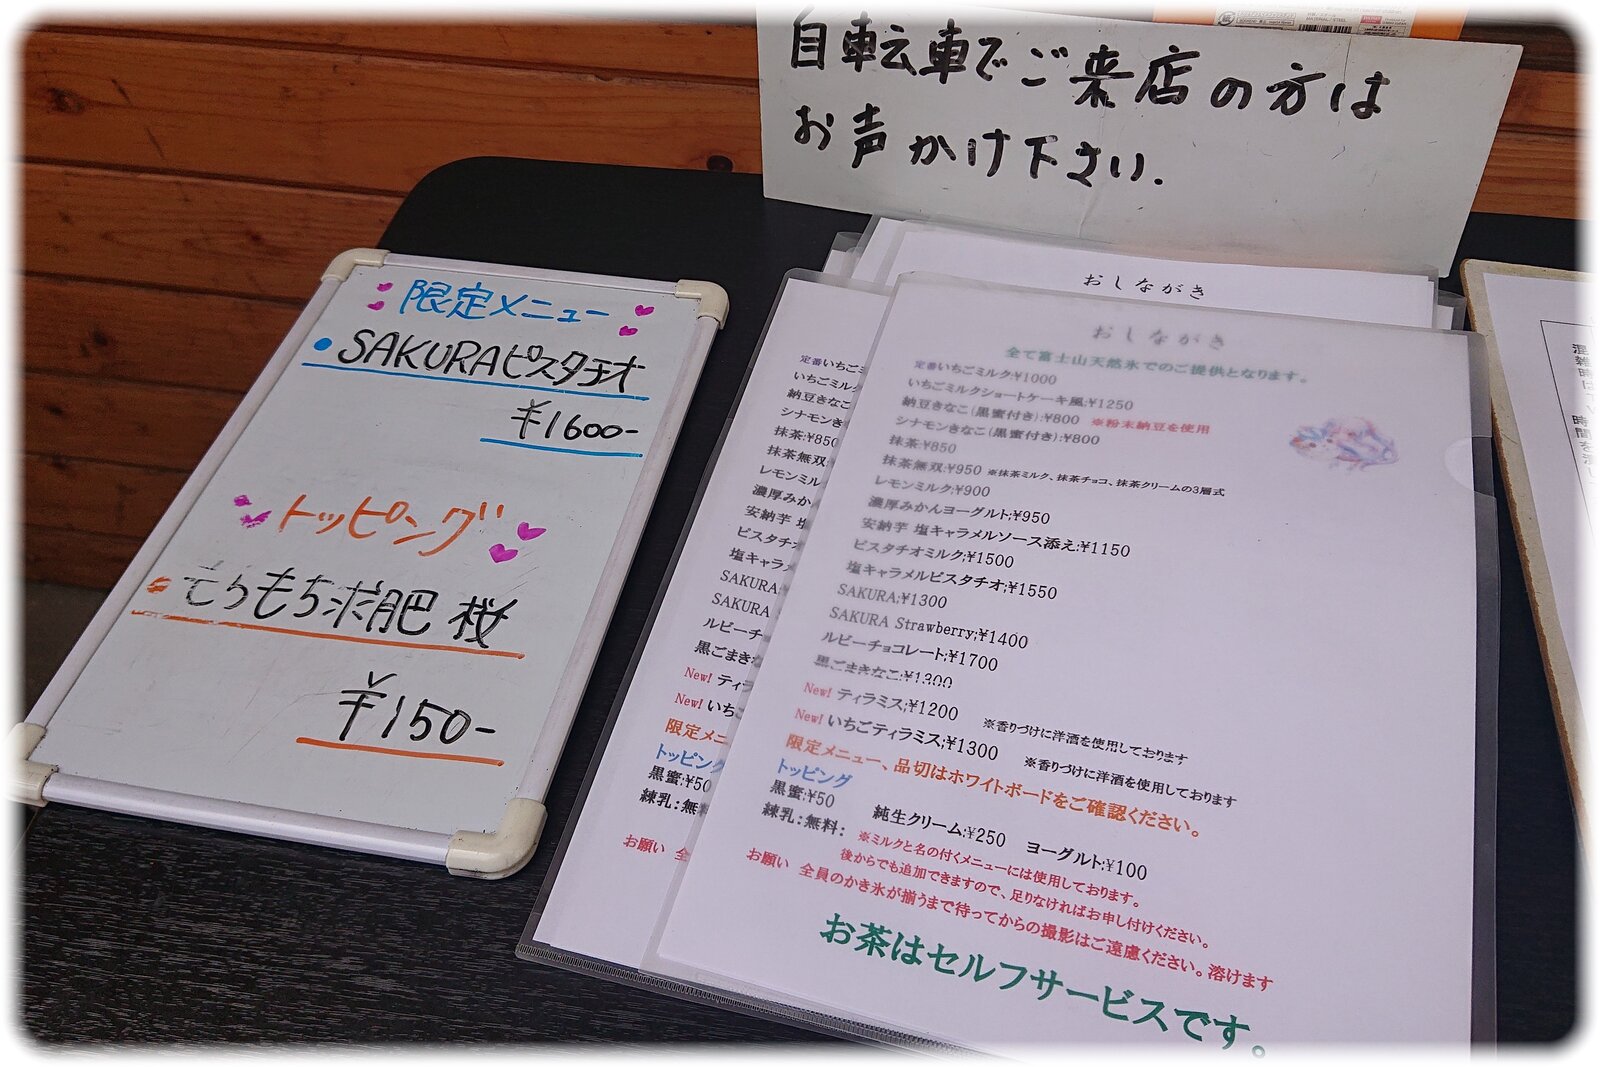 自転車でご来店の方は
お声かけ下さい.
限定メニュー
SAKURAピスタチオ
¥1600-
トッピング
もちもち求肥 桜
¥150-
おしながき
おしながき
全て富士山天然氷でのご提供となります。
定番いちごミルク:¥1000
いちごミルクショートケーキ風:¥1250
納豆きなこ(黒蜜付き):¥800 ※粉末納豆を使用
シナモンきなこ(黒蜜付き):¥800
抹茶:¥850
抹茶無双:¥950 ※抹茶ミルク、抹茶チョコ、抹茶クリームの3層式
レモンミルク:¥900
濃厚みかんヨーグルト;¥950
安納芋 塩キャラメルソース添え:¥1150
ピスタチオミルク;¥1500
塩キャラメルピスタチオ;¥1550
SAKURA;¥1300
SAKURA Strawberry;¥1400
ルビーチョコレート;¥1700
黒ごまきなこ:¥1300
New! ティラミス;¥1200 ※香りづけに洋酒を使用しております
New! いちごティラミス;¥1300 ※香りづけに洋酒を使用しております
限定メニュー、品切はホワイトボードをご確認ください。
トッピング
黒蜜:¥50 純生クリーム:¥250 ヨーグルト;¥100
練乳:無料: ※ミルクと名の付くメニューには使用しております。
後からでも追加できますので、足りなければお申し付けください。
お願い 全員のかき氷が揃うまで待ってからの撮影はご遠慮ください。溶けます
お茶はセルフサービスです。
定番いちごミ
いちごミルク
納豆きなこ
シナモンき
抹茶:¥850
抹茶無双:
レモンミル
濃厚みかん
安納芋 塩
ピスタチオ
塩キャラメ
SAKURA;
SAKURA
ルビーチョ
黒ごまきな
New! ティラ
New! いちご
限定メニ
トッピング
黒蜜:¥50
練乳:無料
お願い 全
混雑時は
時間を